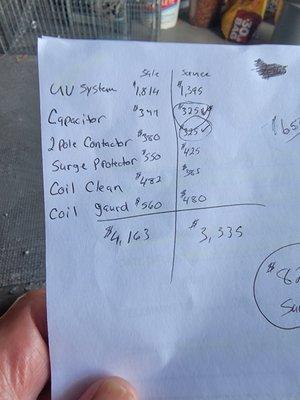 Sale Service
UV System $1,814 $1,395
Capacitor $377 $325
2 Pole Contactor $380 $325
Surge Protector $550 $425
Coil Clean $482 $385
Coil gaurd $560 $480
$4,163 $3,335